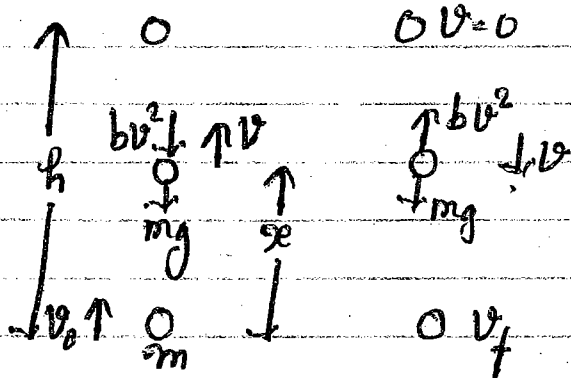 v = 0
bv² ↑v ↑bv²
h ↓v
mg x mg
v₀↑ m v_f